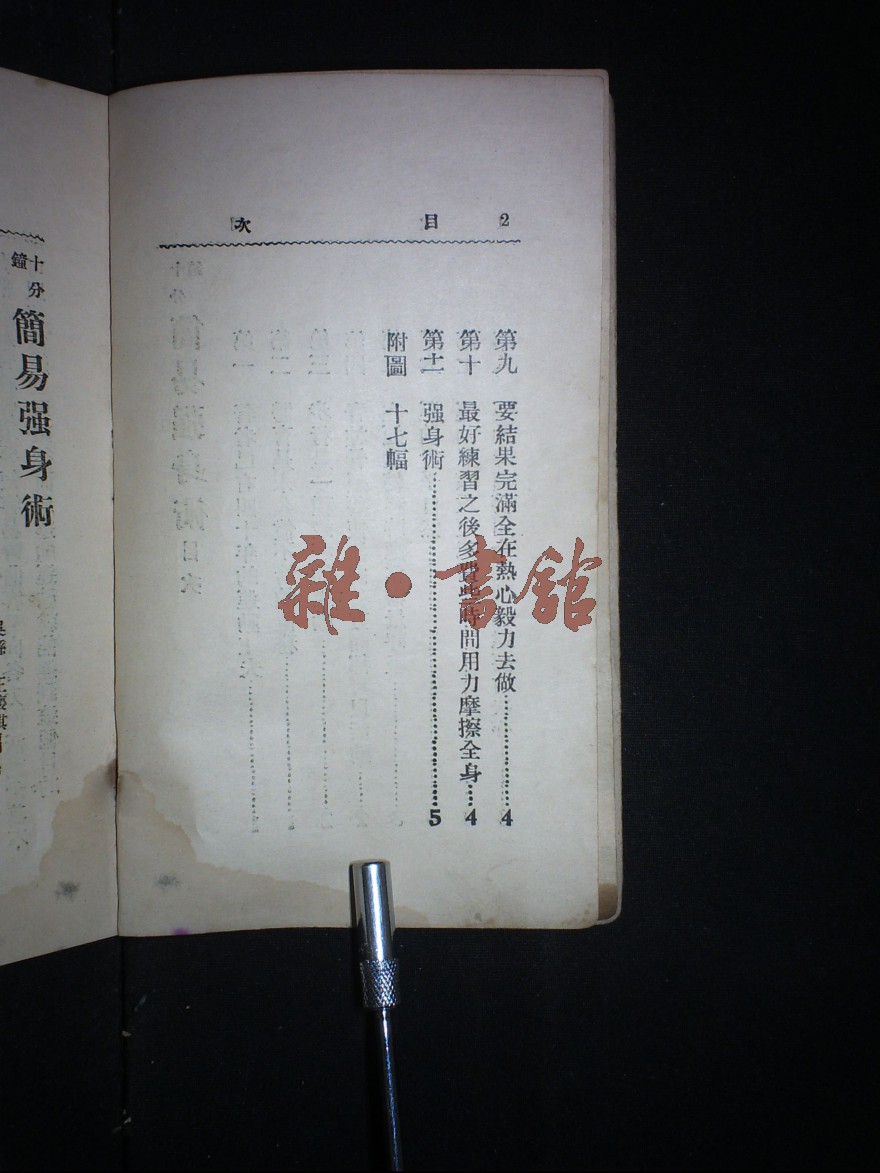 2 目次
第九 要結果完滿全在熱心毅力去做……………4
第十 最好練習之後多費些時間用力摩擦全身…4
第十一 强身術……………………………………5
附圖 十七幅
十分鐘
簡易强身術
雜·書館